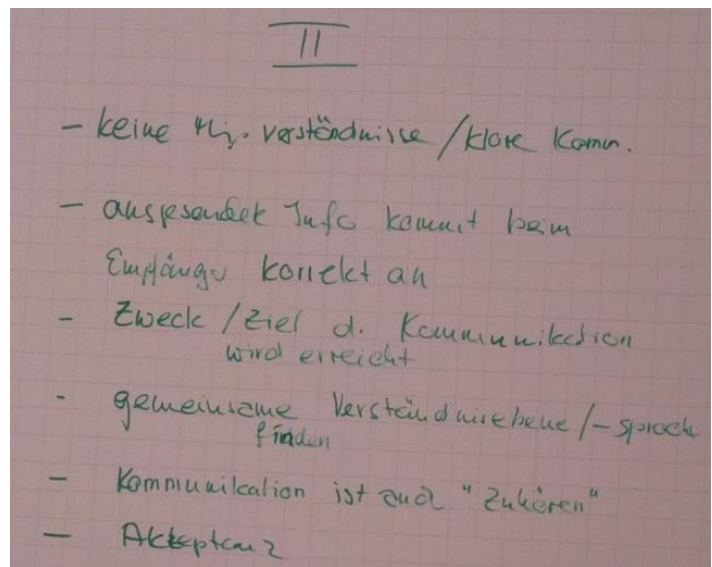 II
- keine Miß-verständnisse / klare Komm.
- ausgesendete Info kommt beim
Empfänger korrekt an
- Zweck / Ziel d. Kommunikation
wird erreicht
- gemeinsame Verständnisebene / - sprache
finden
- Kommunikation ist auch "Zuhören"
- Akzeptanz